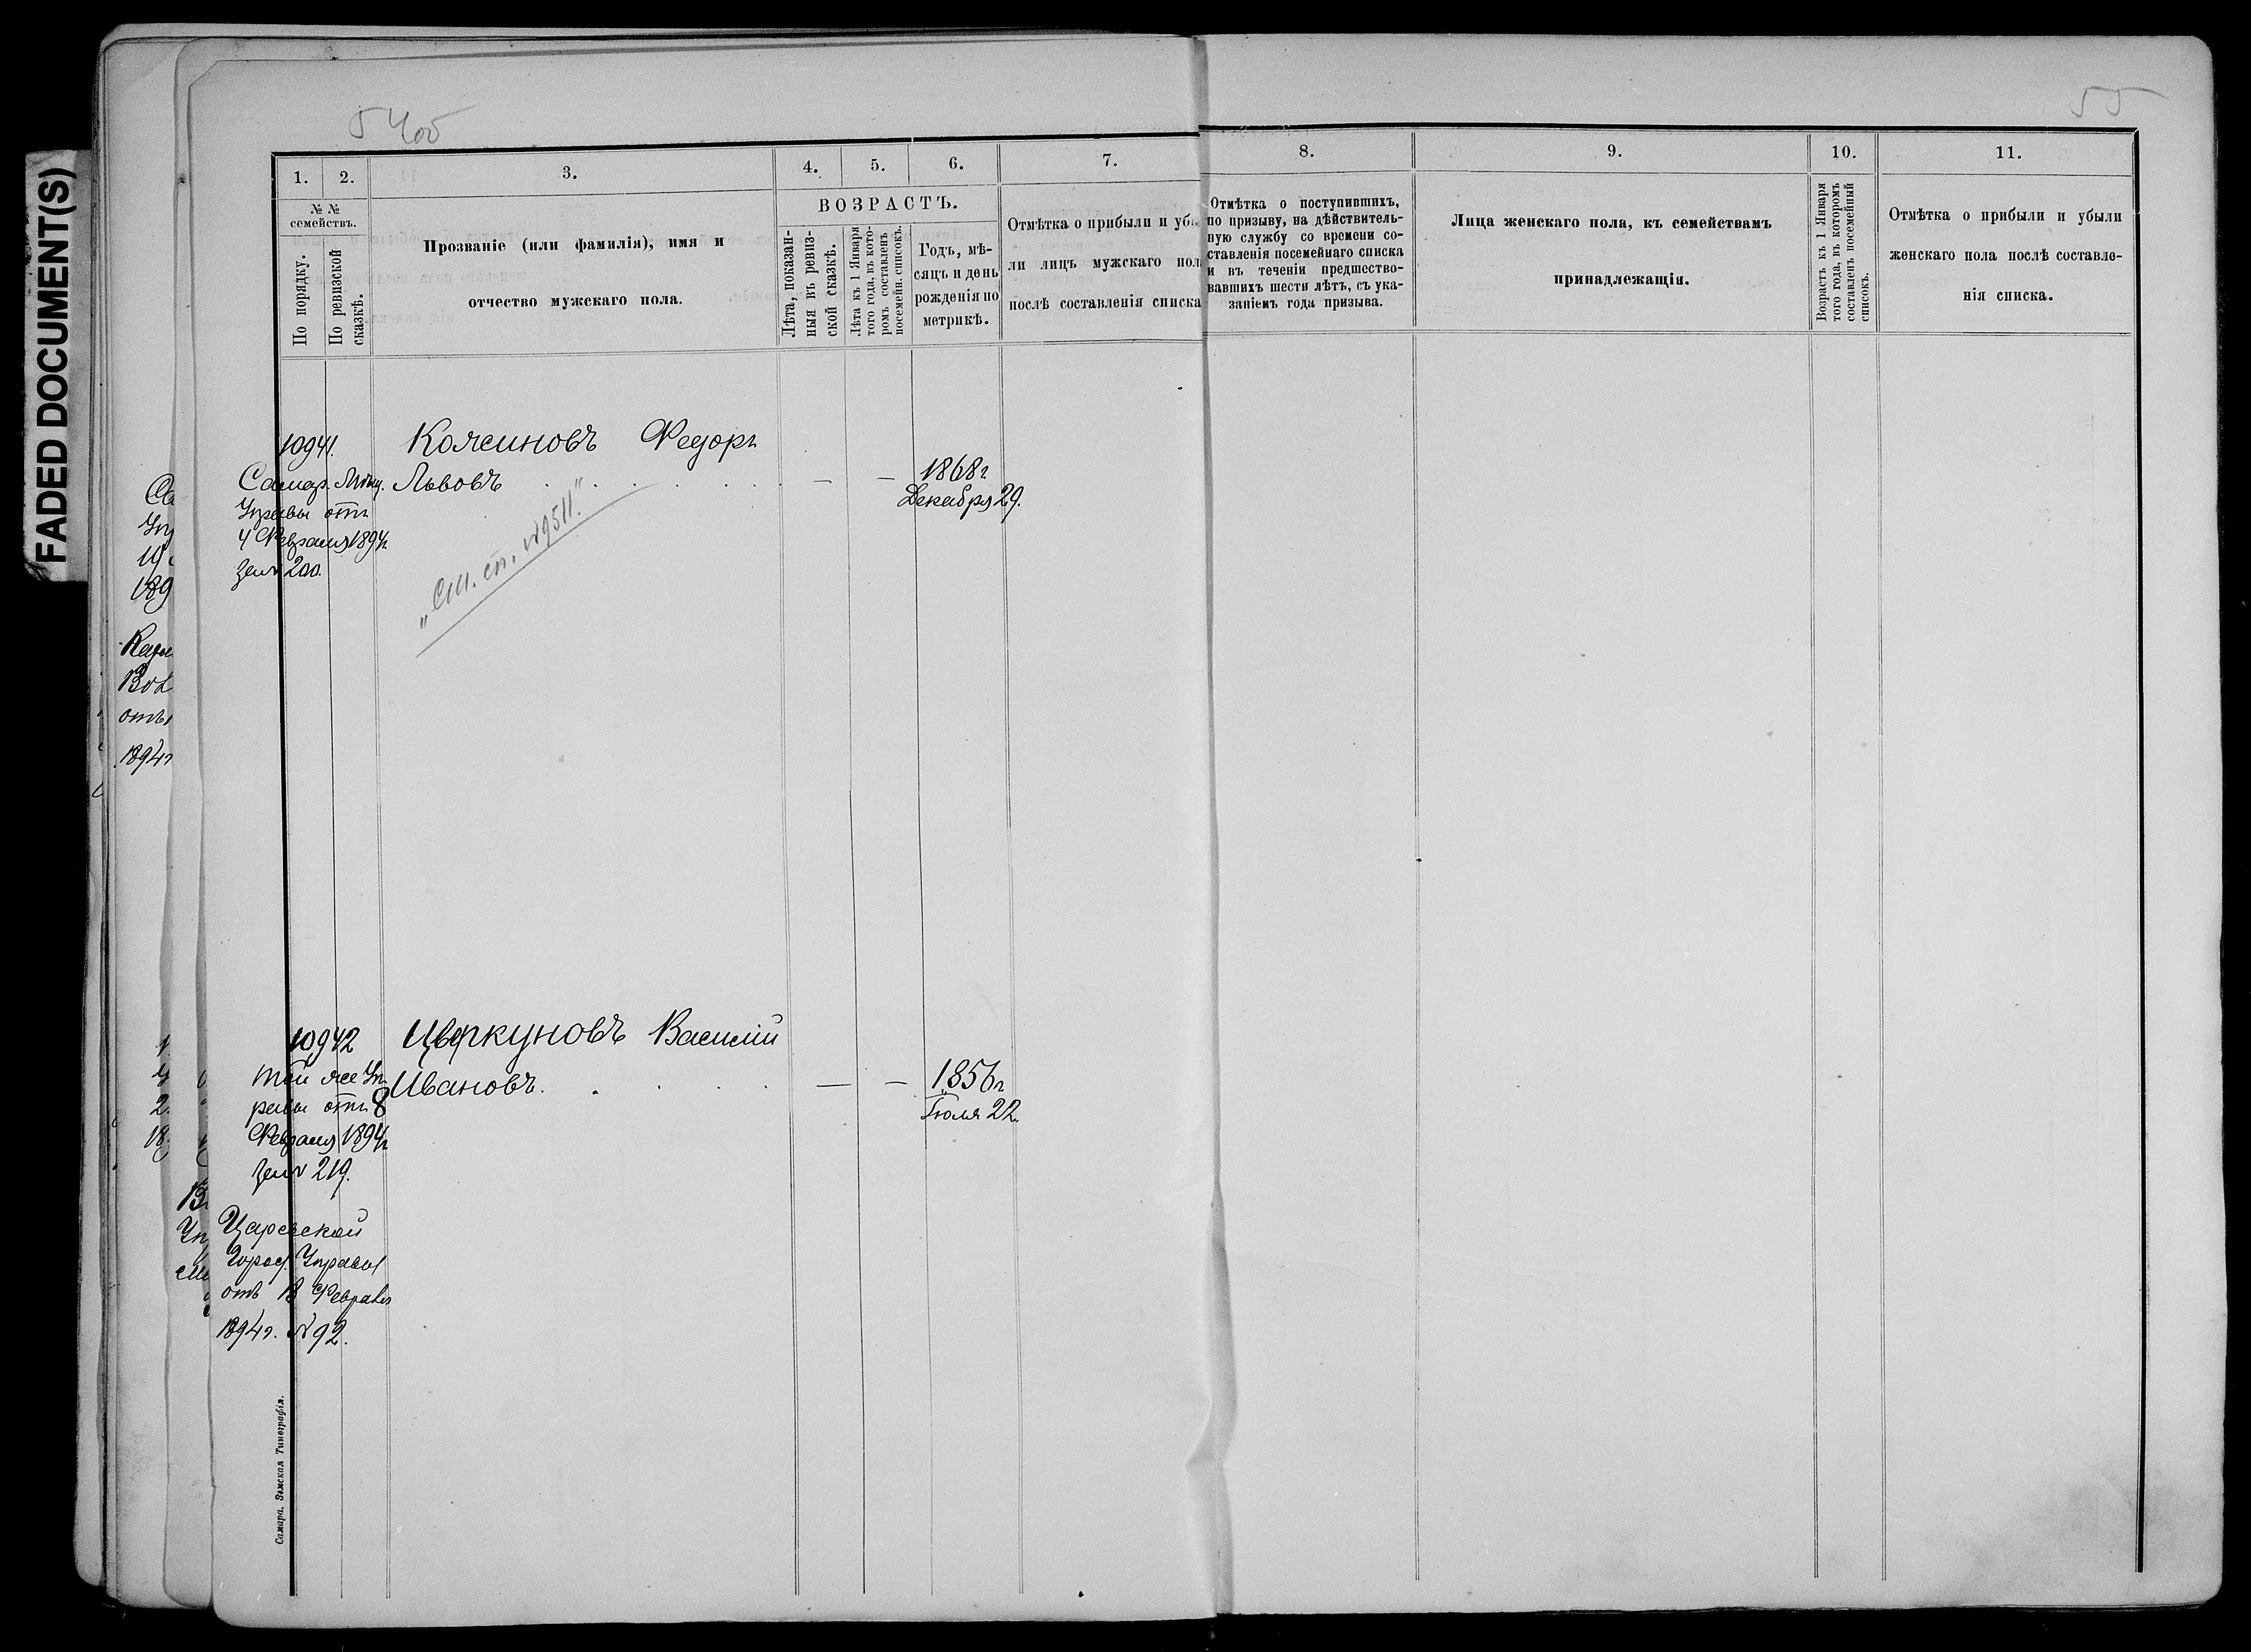 FADED DOCUMENT(S)
55
1.
2.
3.
4.
5.
6.
7.
8.
9.
10.
11.
№ №
семействъ.
По порядку.
По ревизской
сказкѣ.
Прозваніе (или фамилія), имя и
отчество мужскаго пола.
ВОЗРАСТЪ.
Лѣта, показан-
ныя въ ревиз-
ской сказкѣ.
Лѣта къ 1 Января
того года, въ кото-
ромъ составленъ
посемейн. списокъ.
Годъ, мѣ-
сяцъ и день
рожденія по
метрикѣ.
Отмѣтка о прибыли и убы
ли лицъ мужскаго пол
послѣ составленія списка
Отмѣтка о поступившихъ,
по призыву, на дѣйствитель-
ную службу со времени со-
ставленія посемейнаго списка
и въ теченіи предшество-
вавшихъ шести лѣтъ, съ ука-
заніемъ года призыва.
Лица женскаго пола, къ семействамъ
принадлежащія.
Возрастъ къ 1 Января
того года, въ которомъ
составленъ посемейный
списокъ.
Отмѣтка о прибыли и убыли
женскаго пола послѣ составле-
нія списка.
10941.
Кожиновъ Федоръ
Самар. Мѣщ.
Львовъ
— —
1868г
Декабря 29.
Управы отъ
4 Февраля 1894г
за № 200.
„Ст. сп. №9511."
10942
Цыркуновъ Василій
той же Уп
Ивановъ.
— —
1856г
Іюля 22.
равы отъ 8
Февраля 1894г
за № 219.
Царевской
Город. Управы
отъ 18 Февраля
1894г. № 92.
Самара. Земская Типографія.